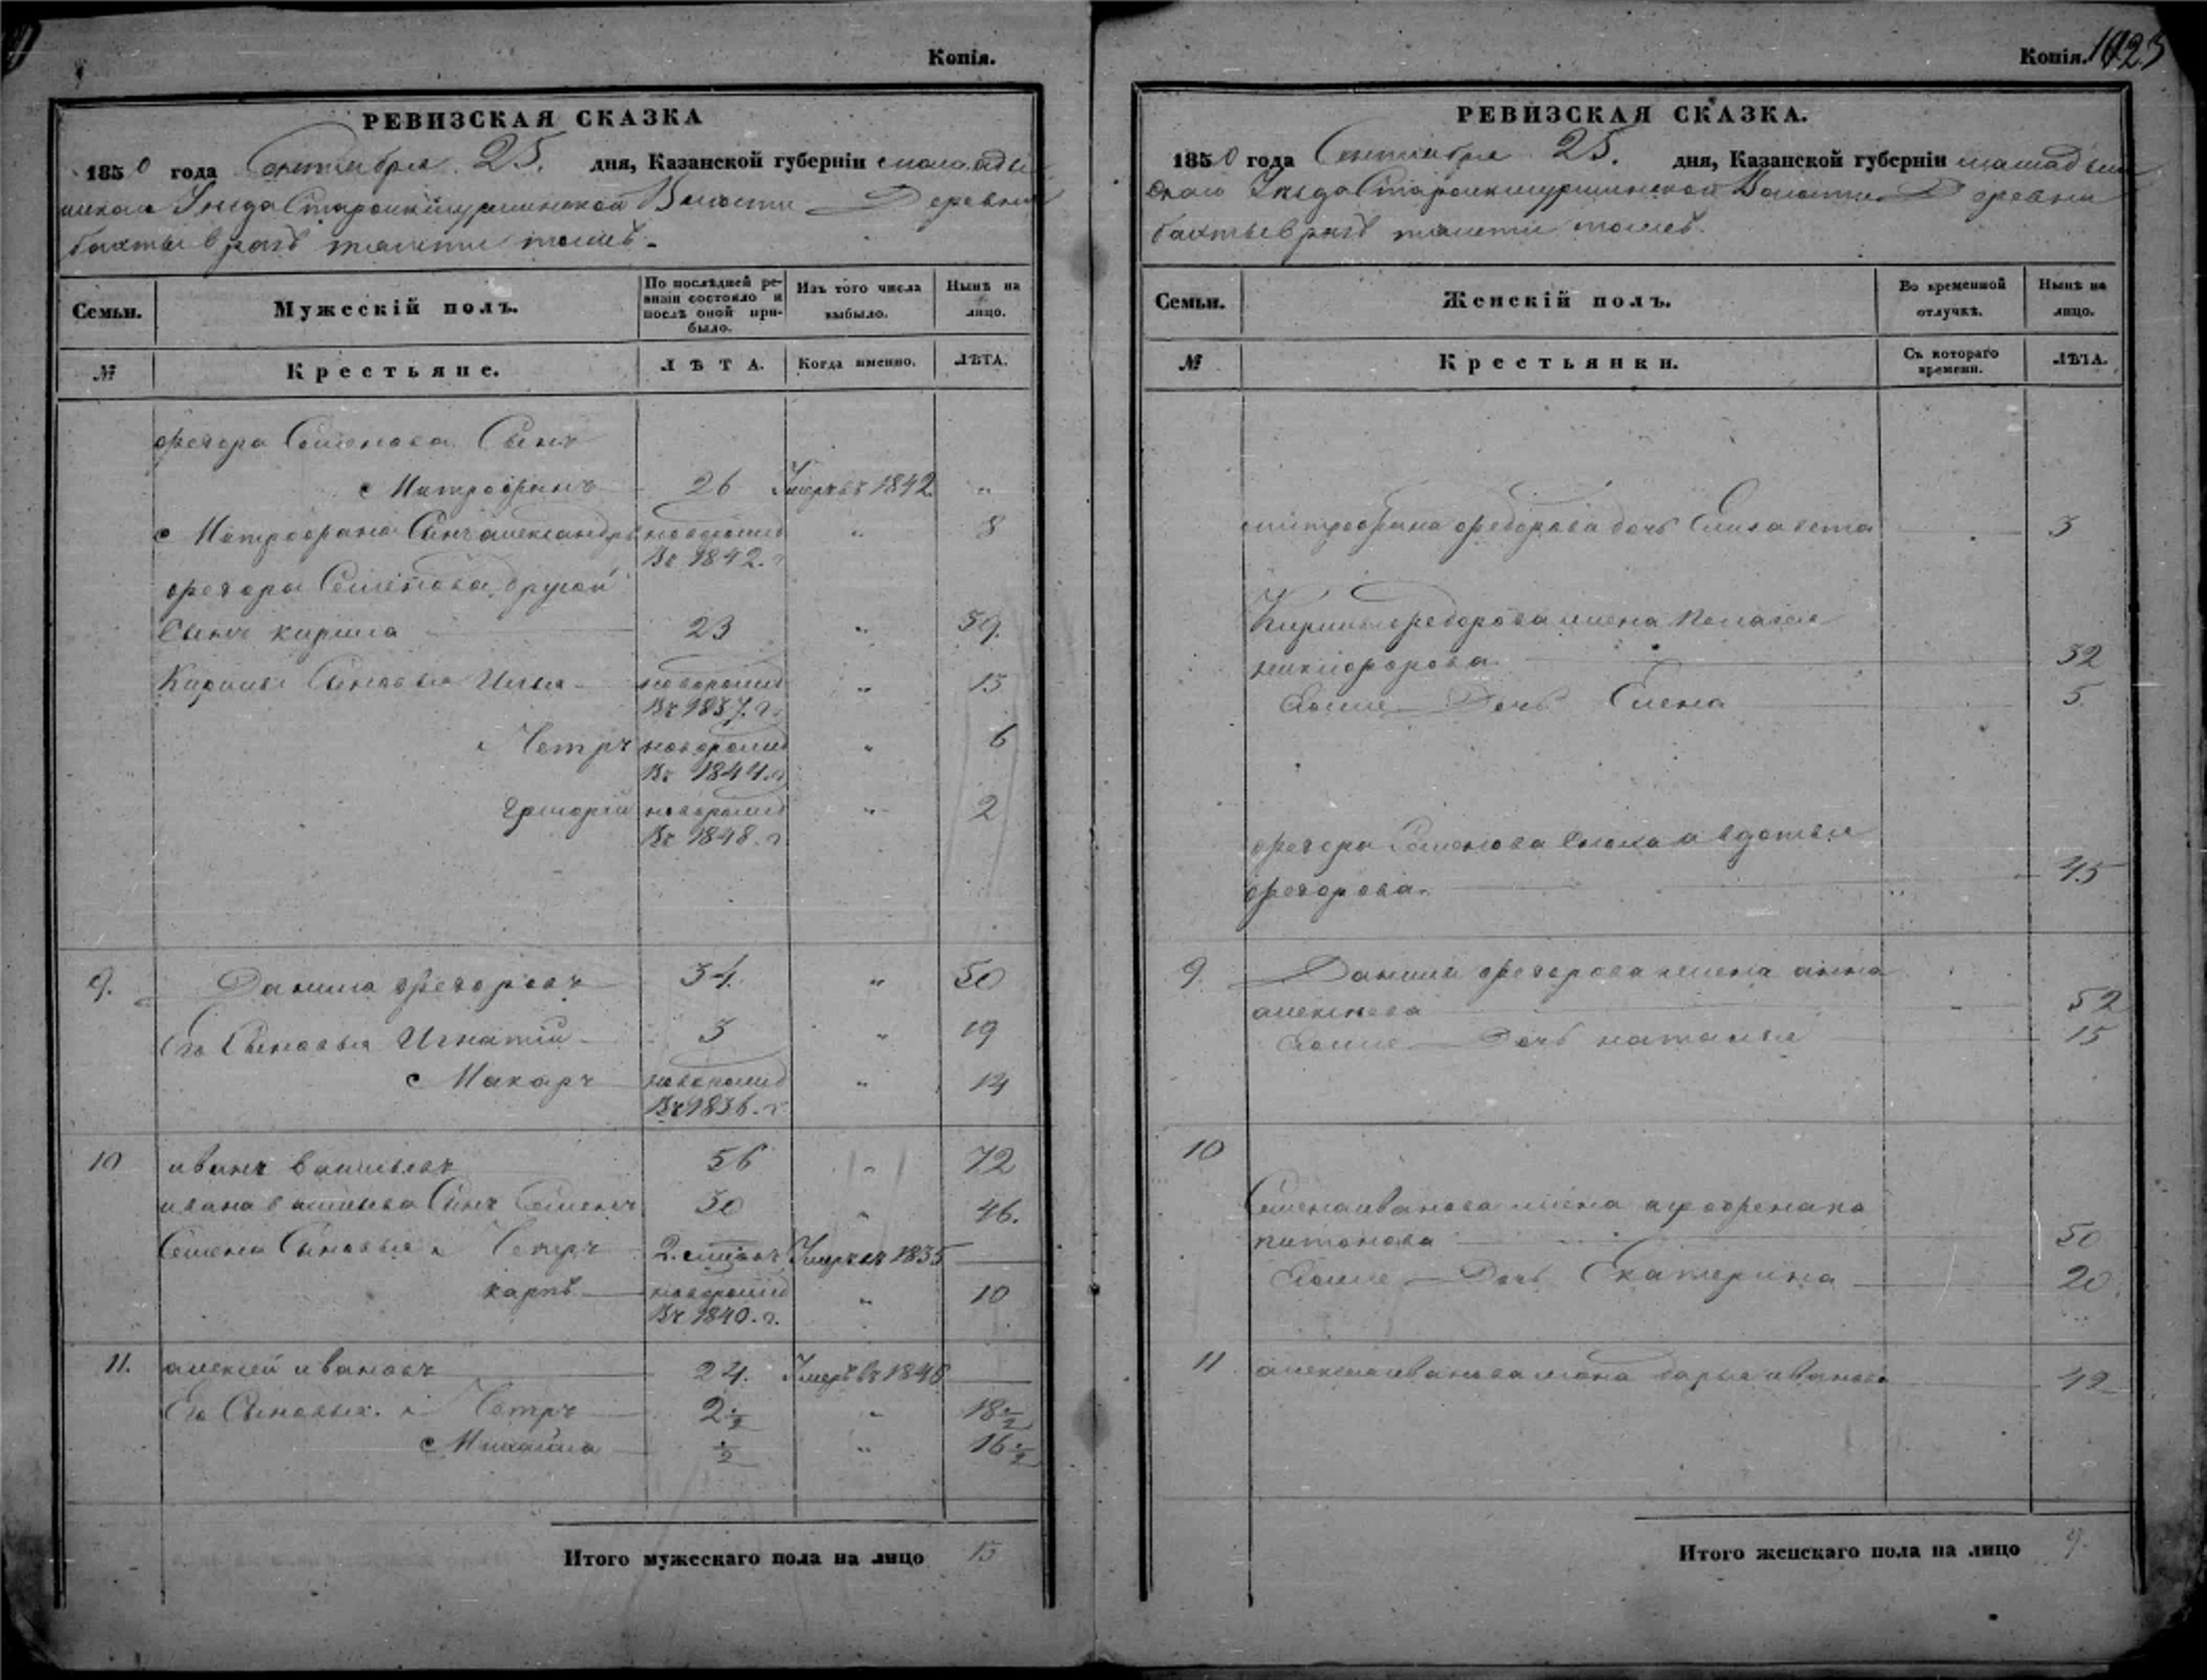 Копія.
РЕВИЗСКАЯ СКАЗКА
1850 года Сентября 25. дня, Казанской губерніи
Уѣзда Волости Деревни
Семьи.
Мужескій полъ.
По послѣдней ре-
визіи состояло и
послѣ оной при-
было.
Изъ того числа
выбыло.
Нынѣ на
лицо.
№
Крестьяне.
ЛѢТА.
Когда именно.
ЛѢТА.
Федора Семенова Сынъ
Митрофанъ 26 Умеръ въ 1842 "
Митрофана Сынъ александръ новорожд " 8
Въ 1842. г
Федора Семенова другой
Сынъ кирила 23 " 39.
Кирилы Сыновья Илья новорожд " 13
Въ 1837. г.
Петръ новорожд " 6
Въ 1844. г
григорій новорожд " 2
Въ 1848. г
9. Данила Федоровъ 34. " 50
Его Сыновья Игнатій 3 " 19
Макаръ новорожд " 14
Въ 1836. г
10 иванъ васильевъ 56 " 72
ивана васильева Сынъ Семенъ 30 " 46.
Семена Сыновья Петръ Умеръ въ 1835
карпъ новорожд " 10
Въ 1840. г.
11. алексей ивановъ 24. Умеръ въ 1848
Его Сыновья. Петръ 2 1/2 " 18 1/2
Михайла 1/2 " 16 1/2
Итого мужескаго пола на лицо 15
Копія. 1023
РЕВИЗСКАЯ СКАЗКА.
1850 года Сентября 25. дня, Казанской губерніи
Уѣзда Волости Деревни
Семьи.
Женскій полъ.
Во временной
отлучкѣ.
Нынѣ на
лицо.
№
Крестьянки.
Съ котораго
времени.
ЛѢТА.
митрофана федорова дочь Елизавета 3
Кирилы федорова жена Пелагея
никифорова 32
Ево же Дочь Елена 5
федора Семенова Сноха авдотья
федорова. 45
9. Данилы федорова жена анна
алексеева 52
Ево же Дочь наталья 15
10
Семена иванова жена 50
Ево же Дочь Екатерина 20
11 алексея иванова жена дарья иванова 42
Итого женскаго пола на лицо 9.